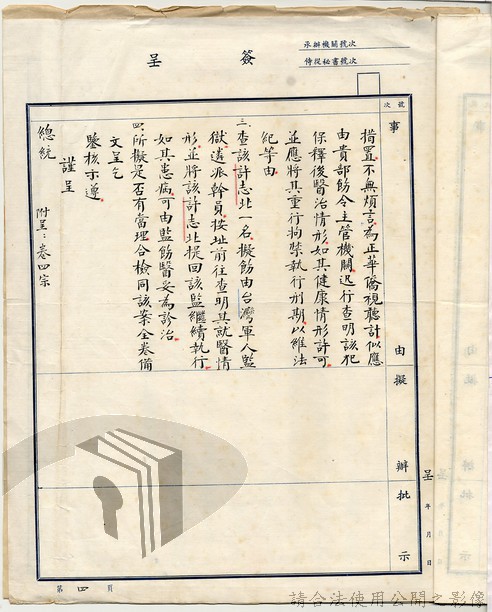 承辦機關號次
侍從秘書號次
簽 呈
號次
事由 擬辦 批示
呈 年 月 日
措置不無煩言為正華僑視聽計似應
由貴部飭令主管機關迅行查明該犯
保釋後醫治情形如其健康情形許可
並應將其重行拘禁執行刑期以維法
紀等由
三、查該許志北一名擬飭由台灣軍人監
獄遴派幹員按址前往查明其就醫情
形並將該許志北提回該監繼續執行
如其患病可由監飭醫妥為診治
四、所擬是否有當理合檢同該案全卷備
文呈乞
鑒核示遵
謹呈
總統
附呈：卷四宗
第四頁
請合法使用公開之影像